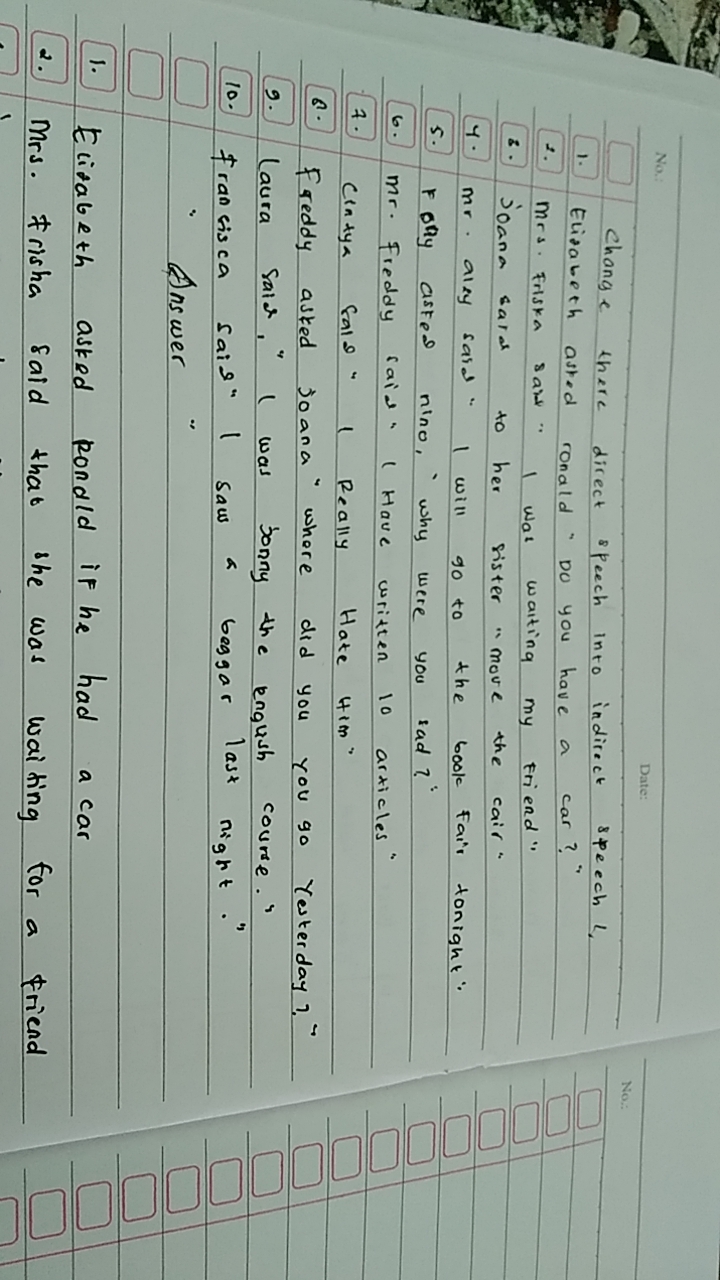 No.:
Date:
Change there direct speech into indirect speech
1. Elizabeth asked ronald " Do you have a car ? "
2. Mrs. Friska saw " I was waiting my Friend "
3. Joana said to her sister " move the cair "
4. Mr. aley said " I will go to the book Fair tonight "
5. asked nino, " why were you sad ? "
6. Mr. Freddy said " I Have written 10 articles "
7. Cintya said " I Really Hate Him "
8. Freddy asked Joana " where did you you go Yesterday ? "
9. Laura said, " I was Jonny the english course. "
10. Fransisca said " I saw a beggar last night . "
" Answer "
1. Elizabeth asked Ronald if he had a car
2. Mrs. Frisha said that she was waiting for a friend
No.: